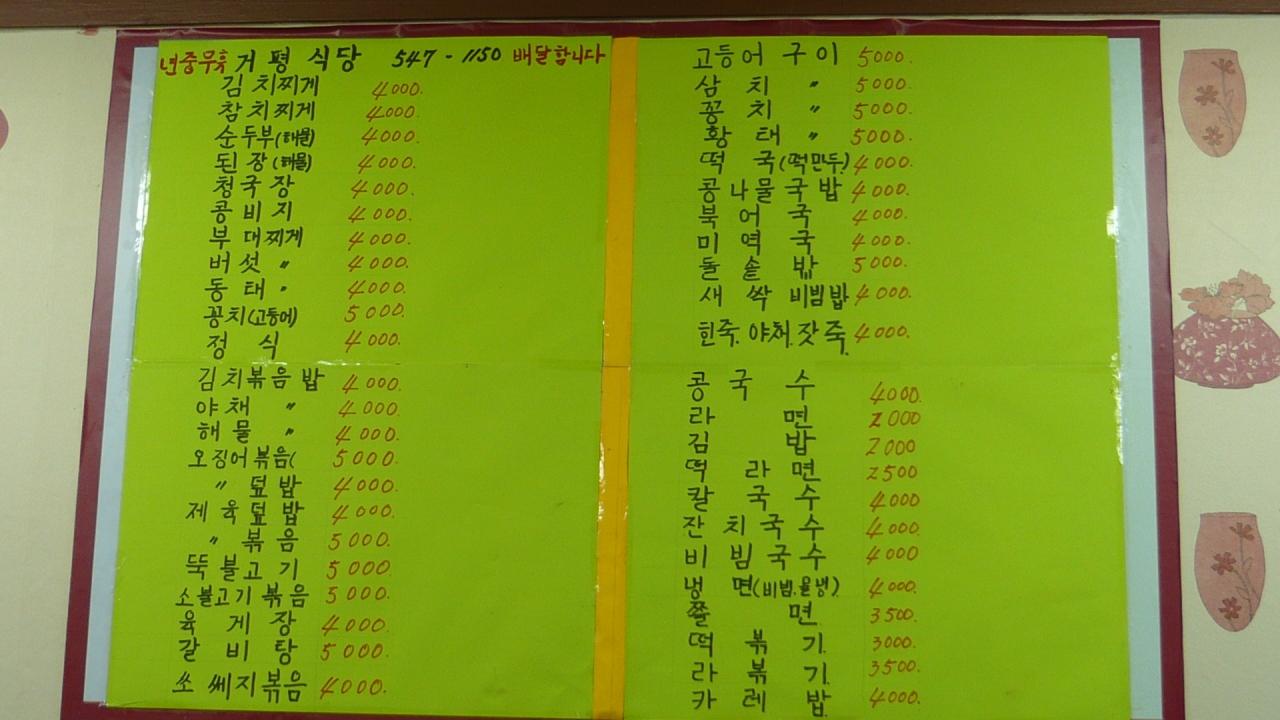 년중무휴 거평식당 547-1150 배달합니다
김치찌게 4000.
참치찌게 4000.
순두부(해물) 4000.
된장(해물) 4000.
청국장 4000.
콩비지 4000.
부대찌게 4000.
버섯 〃 4000.
동태 〃 4000.
꽁치(고등어) 5000.
정식 4000.
김치볶음밥 4000.
야채 〃 4000.
해물 〃 4000.
오징어볶음( 5000.
〃 덮밥 4000.
제육덮밥 4000.
〃 볶음 5000.
뚝불고기 5000.
소불고기볶음 5000.
육게장 4000.
갈비탕 5000.
쏘쎄지볶음 4000.
고등어구이 5000.
삼치 〃 5000.
꽁치 〃 5000.
황태 〃 5000.
떡국(떡만두) 4000.
콩나물국밥 4000.
북어국 4000.
미역국 4000.
돌솥밥 5000.
새싹비빔밥 4000.
흰죽.야채.잣죽. 4000.
콩국수 4000.
라면 2000
김밥 2000
떡라면 2500
칼국수 4000
잔치국수 4000.
비빔국수 4000
냉면(비빔.물냉) 4000.
쫄면 3500.
떡볶기. 3000.
라볶기. 3500.
카레밥. 4000.